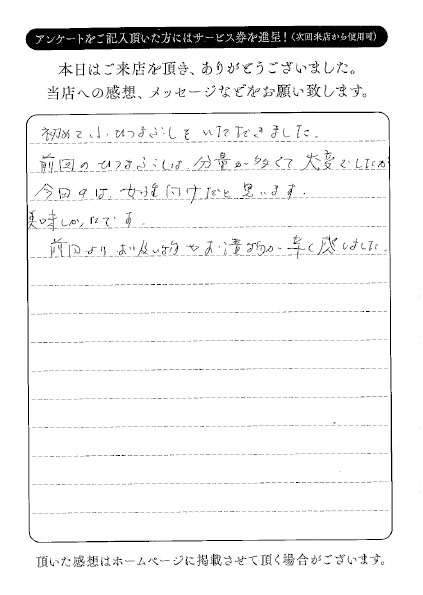 アンケートをご記入頂いた方にはサービス券を進呈!(次回来店から使用可)
本日はご来店を頂き、ありがとうございました。
当店への感想、メッセージなどをお願い致します。
初めて小ひつまぶしをいただきました。
前回のひつまぶしは、分量が多くて大変でしたが
今回のは、女性向けだと思います。
美味しかったです。
前回よりお吸い物やお漬物が辛く感じました。
頂いた感想はホームページに掲載させて頂く場合がございます。